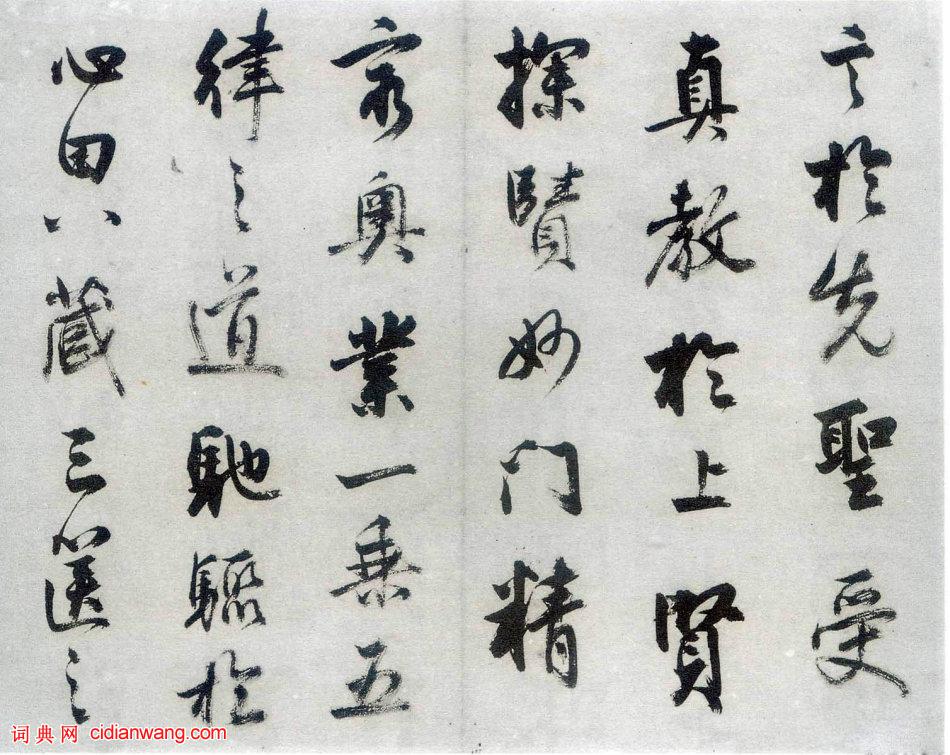 言於先聖受
真教於上賢
探賾妙門精
窮奧業一乘五
律之道馳驟於
心田八藏三篋之
词典网 cidianwang.com